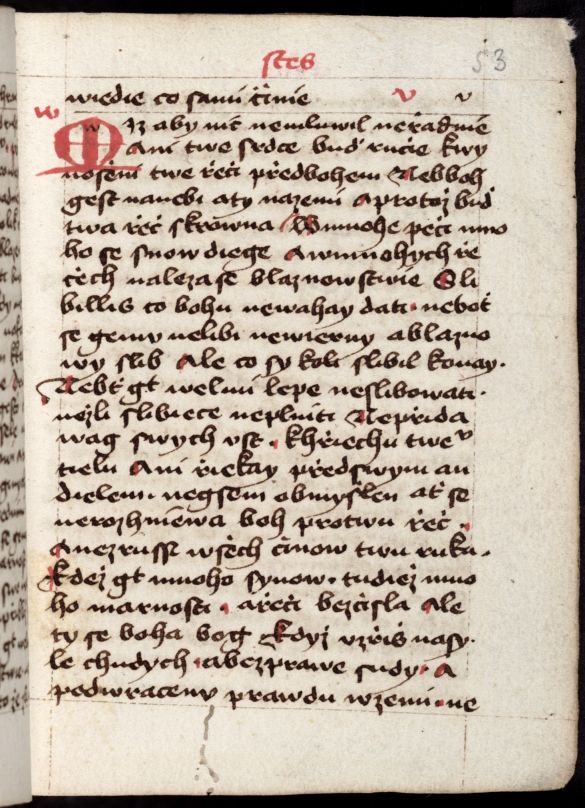 53
wiedie co samii činie v v
w
Niz aby nic nemluwil neřadnie
Ani twe srdce bud ručie kwy
noseni twe řeči předbohem Nebboh
gest nanebi aty nazemi Aprotoz bud
twa řeč skrowna Wmnohe peči mno
ho se snow diege Awmnohych ře
čech nalezase blaznowstwie Sli
billis co bohu newahay dati nebot
se gemu nelibi newierny ablazno
wy slib Ale co sy koli slibil konay.
Nebt gt welmi lepe neslibowati.
nezli slibiece neplniti Nepřida
way swych vst. khřiechu twe v
tielu Ani řiekay předswym an
dielem. negsem obmyslen at se
nerozhniewa boh protiwu řeč.
Anezrussi wsech činow twu ruku.
kdez gt mnoho synow. tudiez mno
ho marnosti. ařeči bezčisla Ale
ty se boha bog kdyz vzřis nasy.
le chudych. abezprawe sudy. A
podwraceny prawdu wzemi. ne